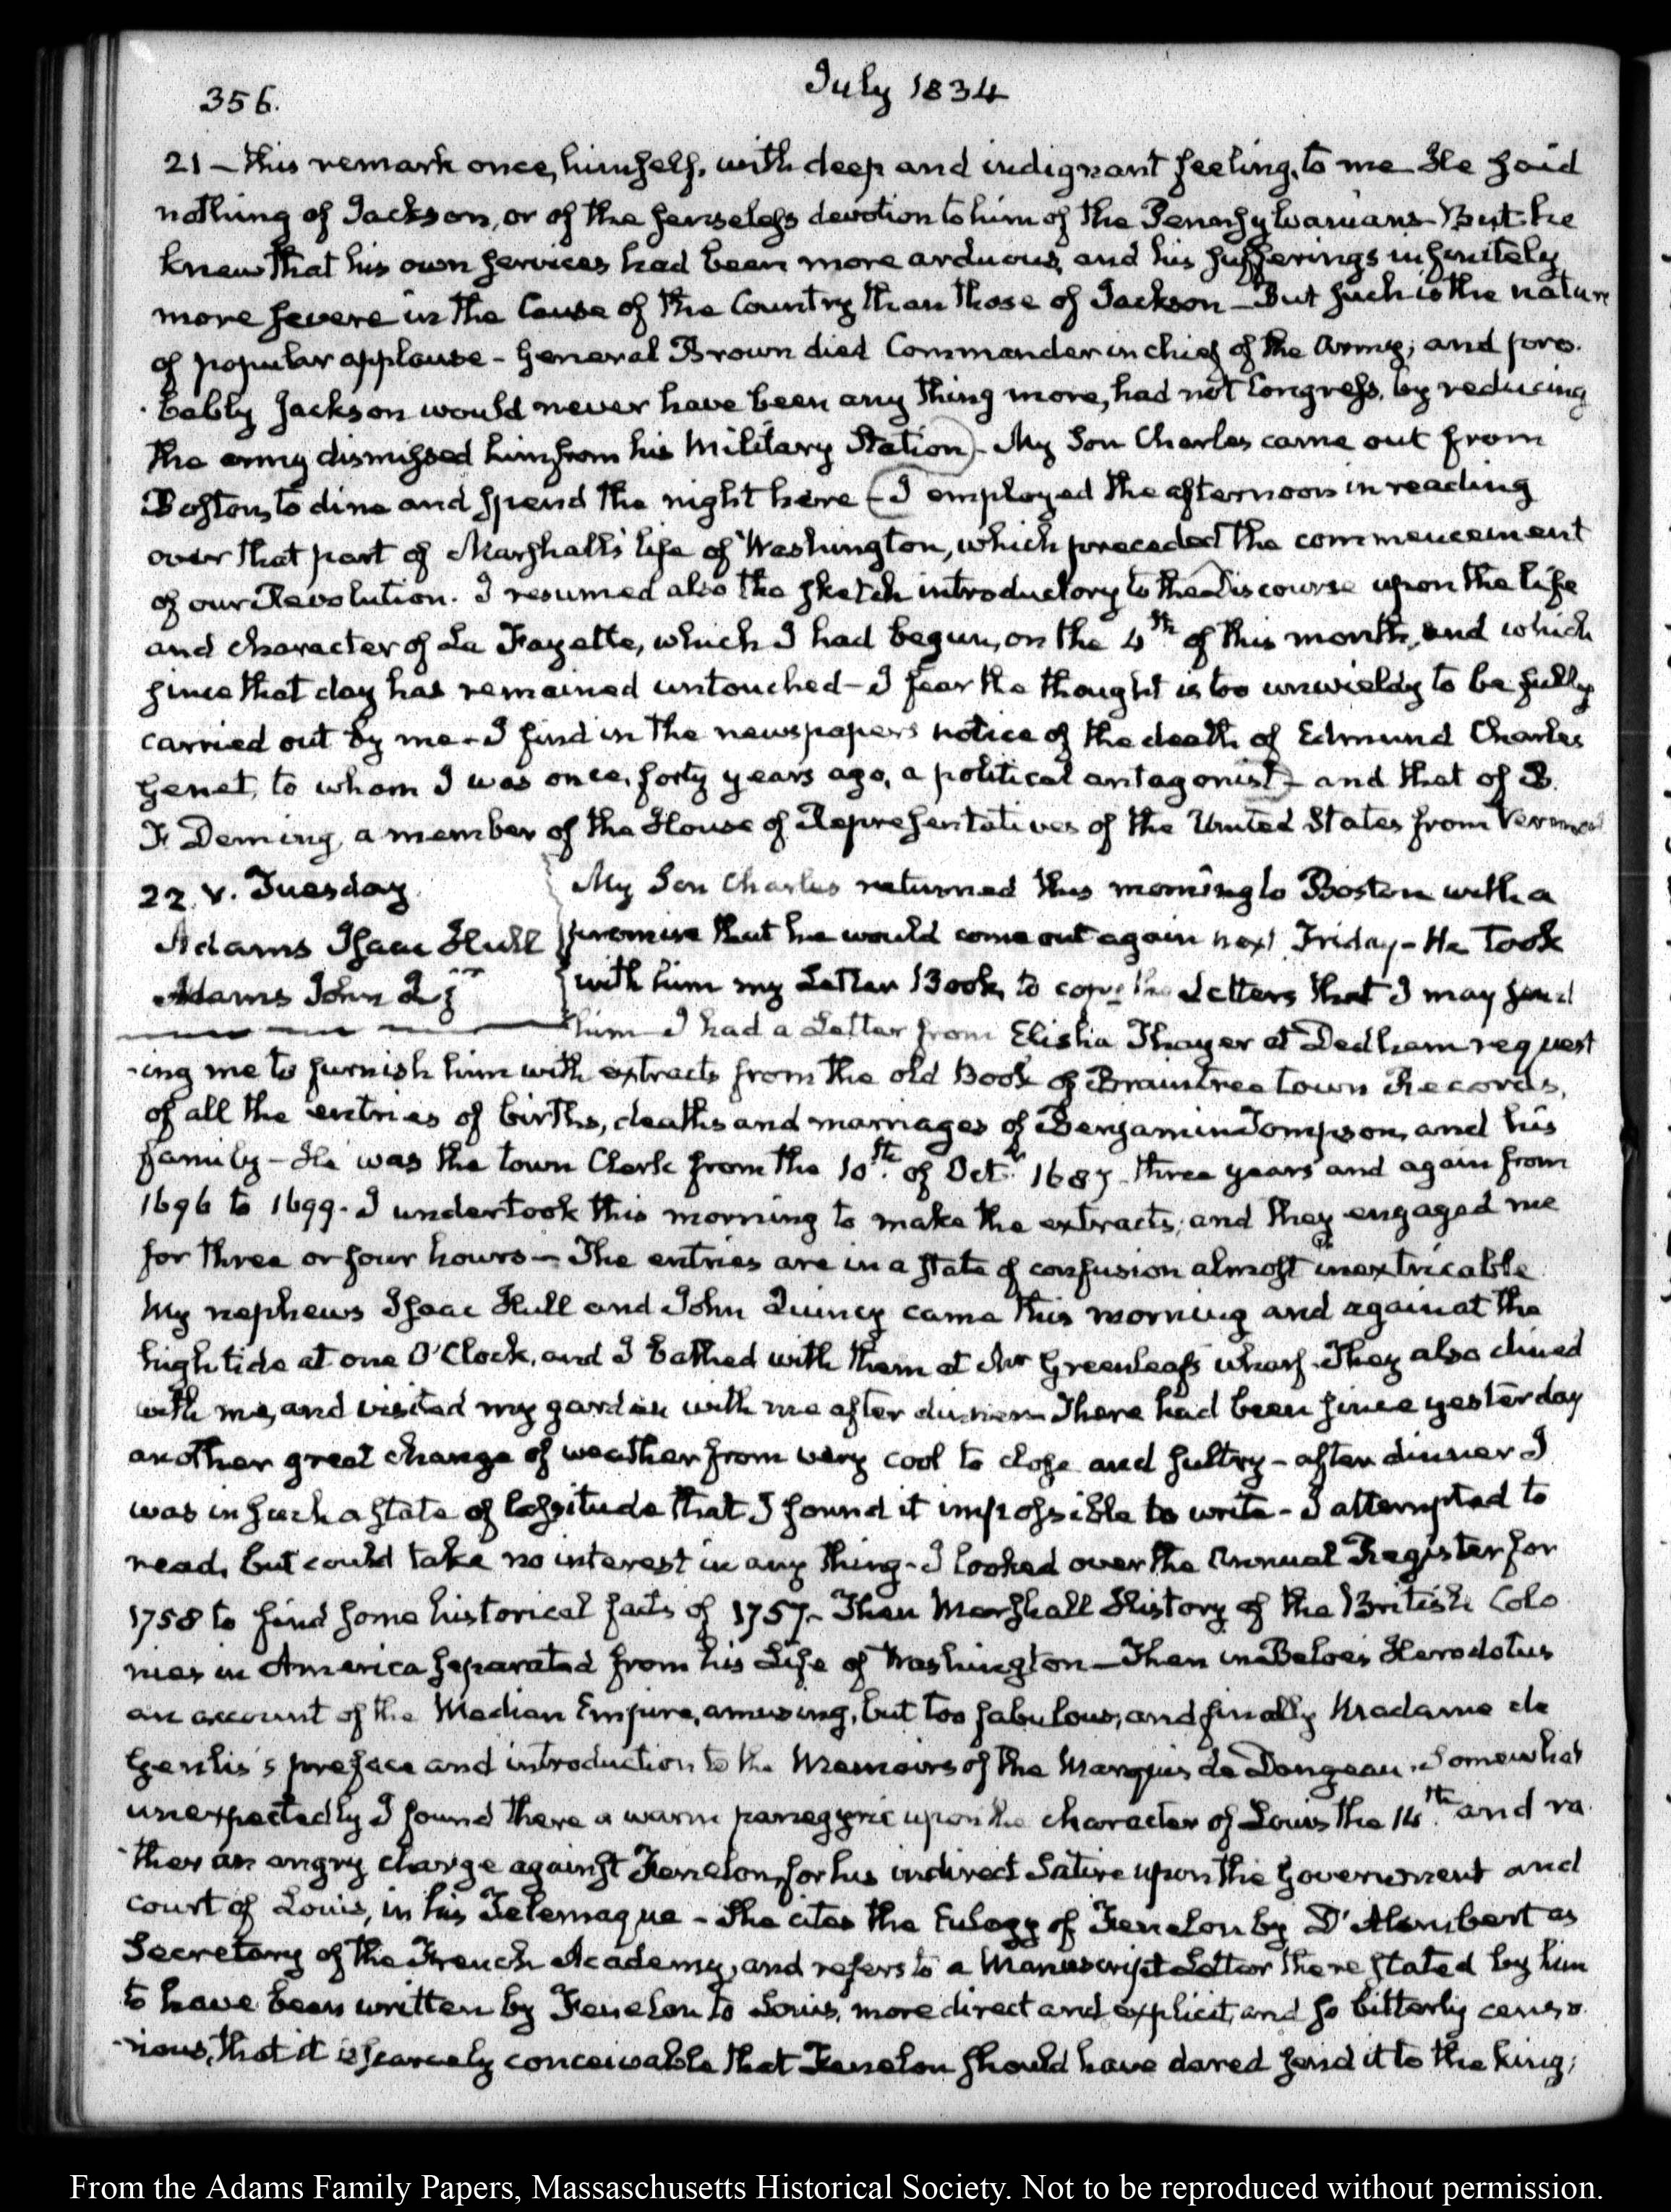 356.
July 1834
21 – this remark once, himself, with deep and indignant feeling, to me – He said
nothing of Jackson, or of the senseless devotion to him of the Pennsylvanians – But he
knew that his own services had been more arduous, and his sufferings infinitely
more severe in the Cause of the Country than those of Jackson – But such is the nature
of popular applause – General Brown died Commander in chief of the Army; and pro-
-bably Jackson would never have been any thing more, had not Congress, by reducing
the army dismissed him from his Military Station) – My Son Charles came out from
Boston, to dine and spend the night here – (I employed the afternoon in reading
over that part of Marshall's life of Washington, which preceded the commencement
of our Revolution. I resumed also the sketch introductory to the Discourse upon the life
and character of La Fayette, which I had begun, on the 4th of this month, and which
since that day has remained untouched – I fear the thought is too unwieldy to be fully
carried out by me – I find in the newspapers notice of the death of Edmund Charles
Genet, to whom I was once, forty years ago, a political antagonist) – and that of B.
F. Deming, a member of the House of Representatives of the United States from Vermont
22. V. Tuesday.
Adams Isaac Hull
Adams John Q. jr
My Son Charles returned this morning to Boston with a
promise that he would come out again next Friday – He took
with him my Letter Book, to copy the Letters that I may send
him – I had a Letter from Elisha Thayer at Dedham request
-ing me to furnish him with extracts from the old Book of Braintree town Records,
of all the entries of births, deaths and marriages of Benjamin Tompson, and his
family – He was the town Clerk from the 10th of Octr 1687 – three years and again from
1696 to 1699. I undertook this morning to make the extracts, and they engaged me
for three or four hours – The entries are in a state of confusion almost inextricable
My nephews Isaac Hull and John Quincy came this morning and again at the
high tide at one O'Clock, and I bathed with them at Mr Greenleaf's wharf. They also dined
with me, and visited my garden with me after dinner. There had been since yesterday
another great change of weather from very cool to close and sultry – after dinner I
was in such a state of lassitude that I found it impossible to write – I attempted to
read, but could take no interest in any thing – I looked over the Annual Register for
1758 to find some historical facts of 1757 – Then Marshall History of the British Colo
nies in America separated from his Life of Washington – Then in Beloe's Herodotus
an account of the Median Empire, amusing, but too fabulous, and finally Madame de
Genlis's preface and introduction to the Memoirs of the Marquis de Dangeau. Somewhat
unexpectedly I found there a warm panegyric upon the character of Louis the 14th and ra
-ther an angry charge against Fenelon, for his indirect Satire upon the Government and
court of Louis, in his Telemaque – She cites the Eulogy of Fenelon by D'Alembert as
Secretary of the French Academy, and refers to a Manuscript Letter there stated by him
to have been written by Fenelon to Louis, more direct and explicit, and so bitterly censo
-rious, that it is scarcely conceivable that Fenelon should have dared send it to the king;
From the Adams Family Papers, Massachusetts Historical Society. Not to be reproduced without permission.